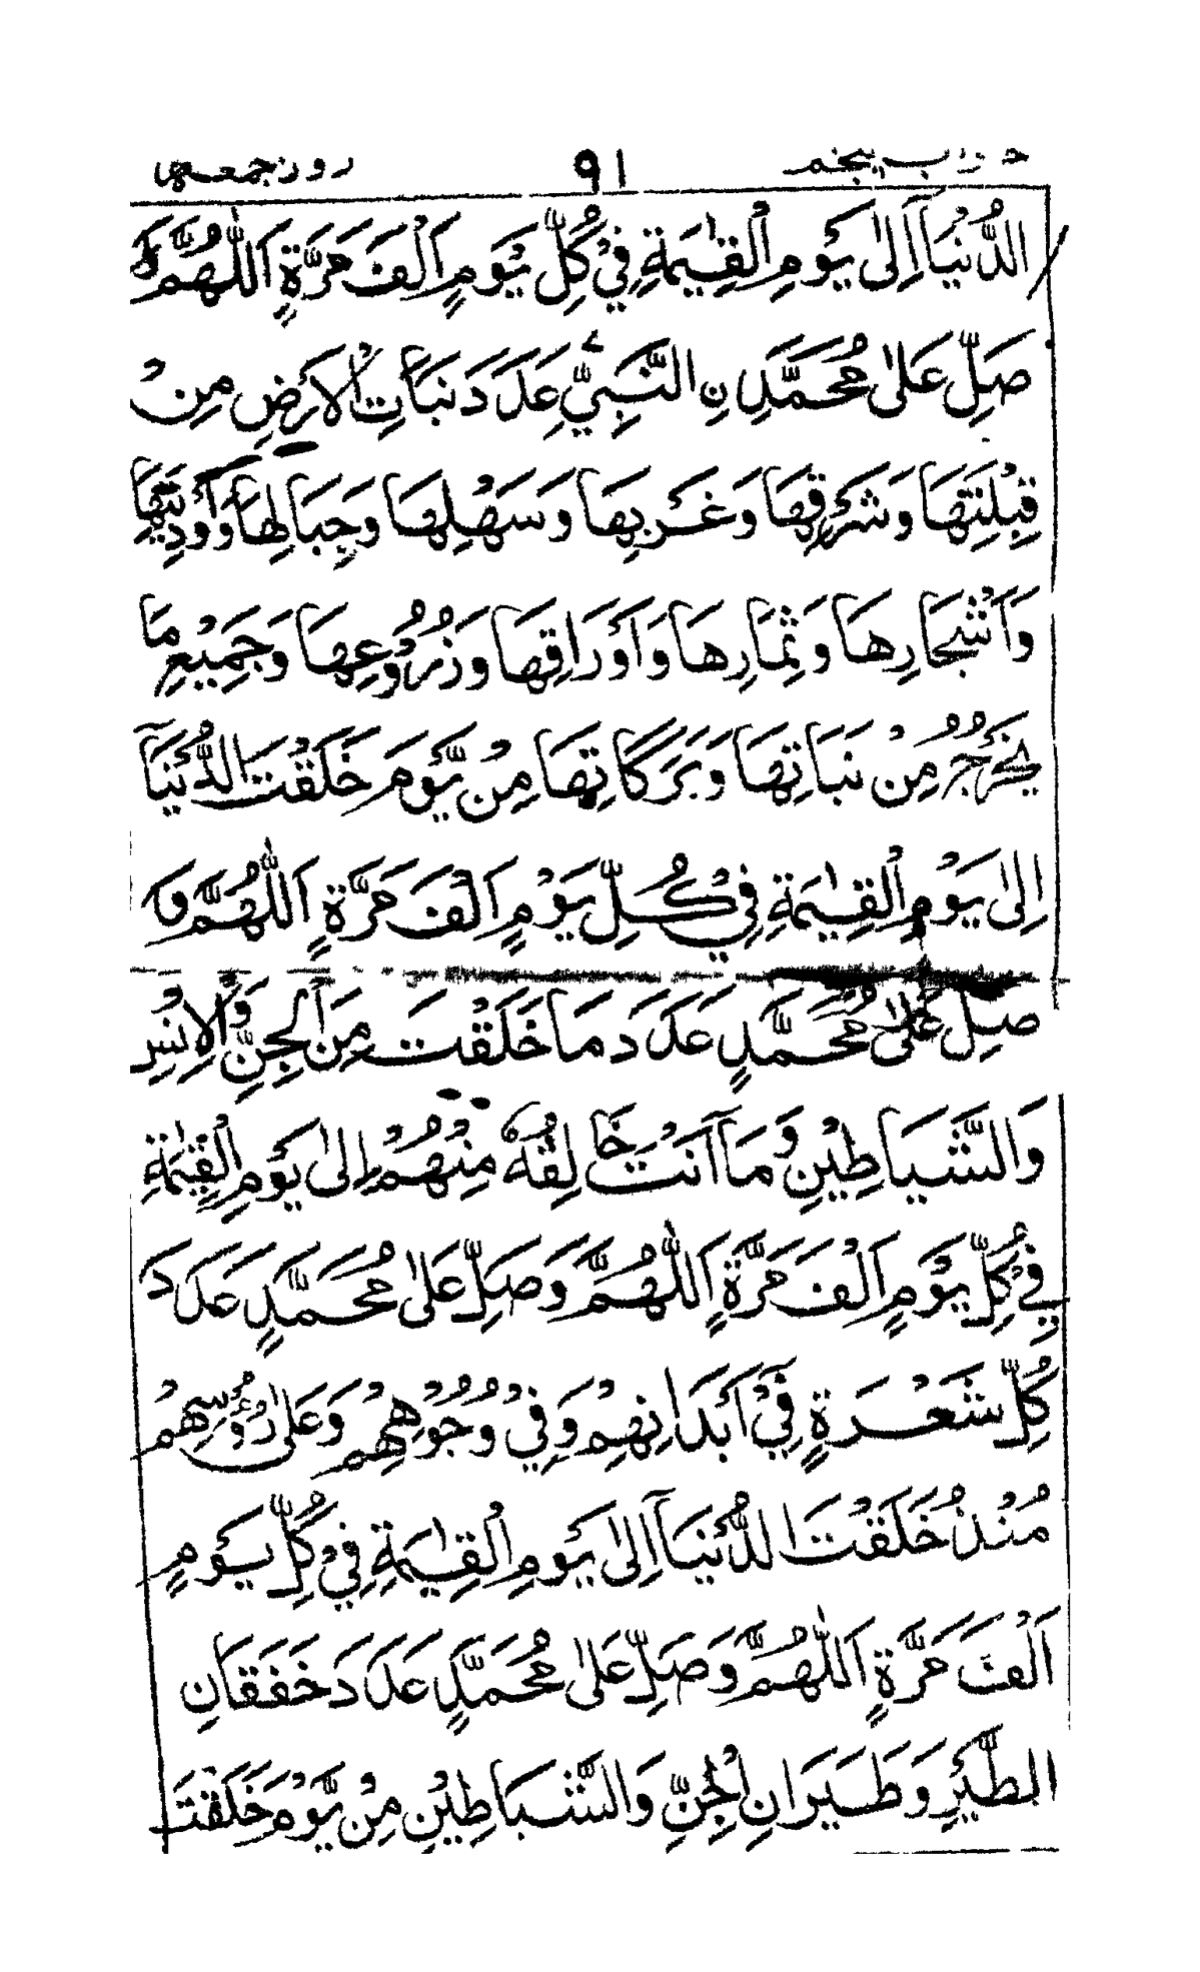 حزاب پنجم ٩١ روز جمعہ
الدُّنْيَآ اِلٰى يَوْمِ الْقِيٰمَةِ فِيْ كُلِّ يَوْمٍ اَلْفَ مَرَّةٍ اَللّٰهُمَّ وَ
صَلِّ عَلٰى مُحَمَّدِ نِ النَّبِيِّ عَدَدَ نَبَاتِ الْاَرْضِ مِنْ
قِبْلَتِهَا وَشَرْقِهَا وَغَرْبِهَا وَسَهْلِهَا وَجِبَالِهَا وَاَوْدِيَتِهَا
وَاَشْجَارِهَا وَثِمَارِهَا وَاَوْرَاقِهَا وَزُرُوْعِهَا وَجَمِيْعِ مَا
يَخْرُجُ مِنْ نَبَاتِهَا وَبَرَكَاتِهَا مِنْ يَّوْمَ خَلَقْتَ الدُّنْيَآ
اِلٰى يَوْمِ الْقِيٰمَةِ فِيْ كُلِّ يَوْمٍ اَلْفَ مَرَّةٍ اَللّٰهُمَّ وَ
صَلِّ عَلٰى مُحَمَّدٍ عَدَدَ مَا خَلَقْتَ مِنَ الْجِنِّ وَالْاِنْسِ
وَالشَّيَاطِيْنِ وَمَآ اَنْتَ خَالِقُهٗ مِنْهُمْ اِلٰى يَوْمِ الْقِيٰمَةِ
فِيْ كُلِّ يَوْمٍ اَلْفَ مَرَّةٍ اَللّٰهُمَّ وَصَلِّ عَلٰى مُحَمَّدٍ عَدَدَ
كُلِّ شَعْرَةٍ فِيْٓ اَبْدَانِهِمْ وَفِيْ وُجُوْهِهِمْ وَعَلٰى رُؤُسِهِمْ
مُنْذُ خَلَقْتَ الدُّنْيَآ اِلٰى يَوْمِ الْقِيٰمَةِ فِيْ كُلِّ يَوْمٍ
اَلْفَ مَرَّةٍ اَللّٰهُمَّ وَصَلِّ عَلٰى مُحَمَّدٍ عَدَدَ خَفَقَانِ
الطَّيْرِ وَطَيَرَانِ الْجِنِّ وَالشَّيَاطِيْنِ مِنْ يَّوْمَ خَلَقْتَ